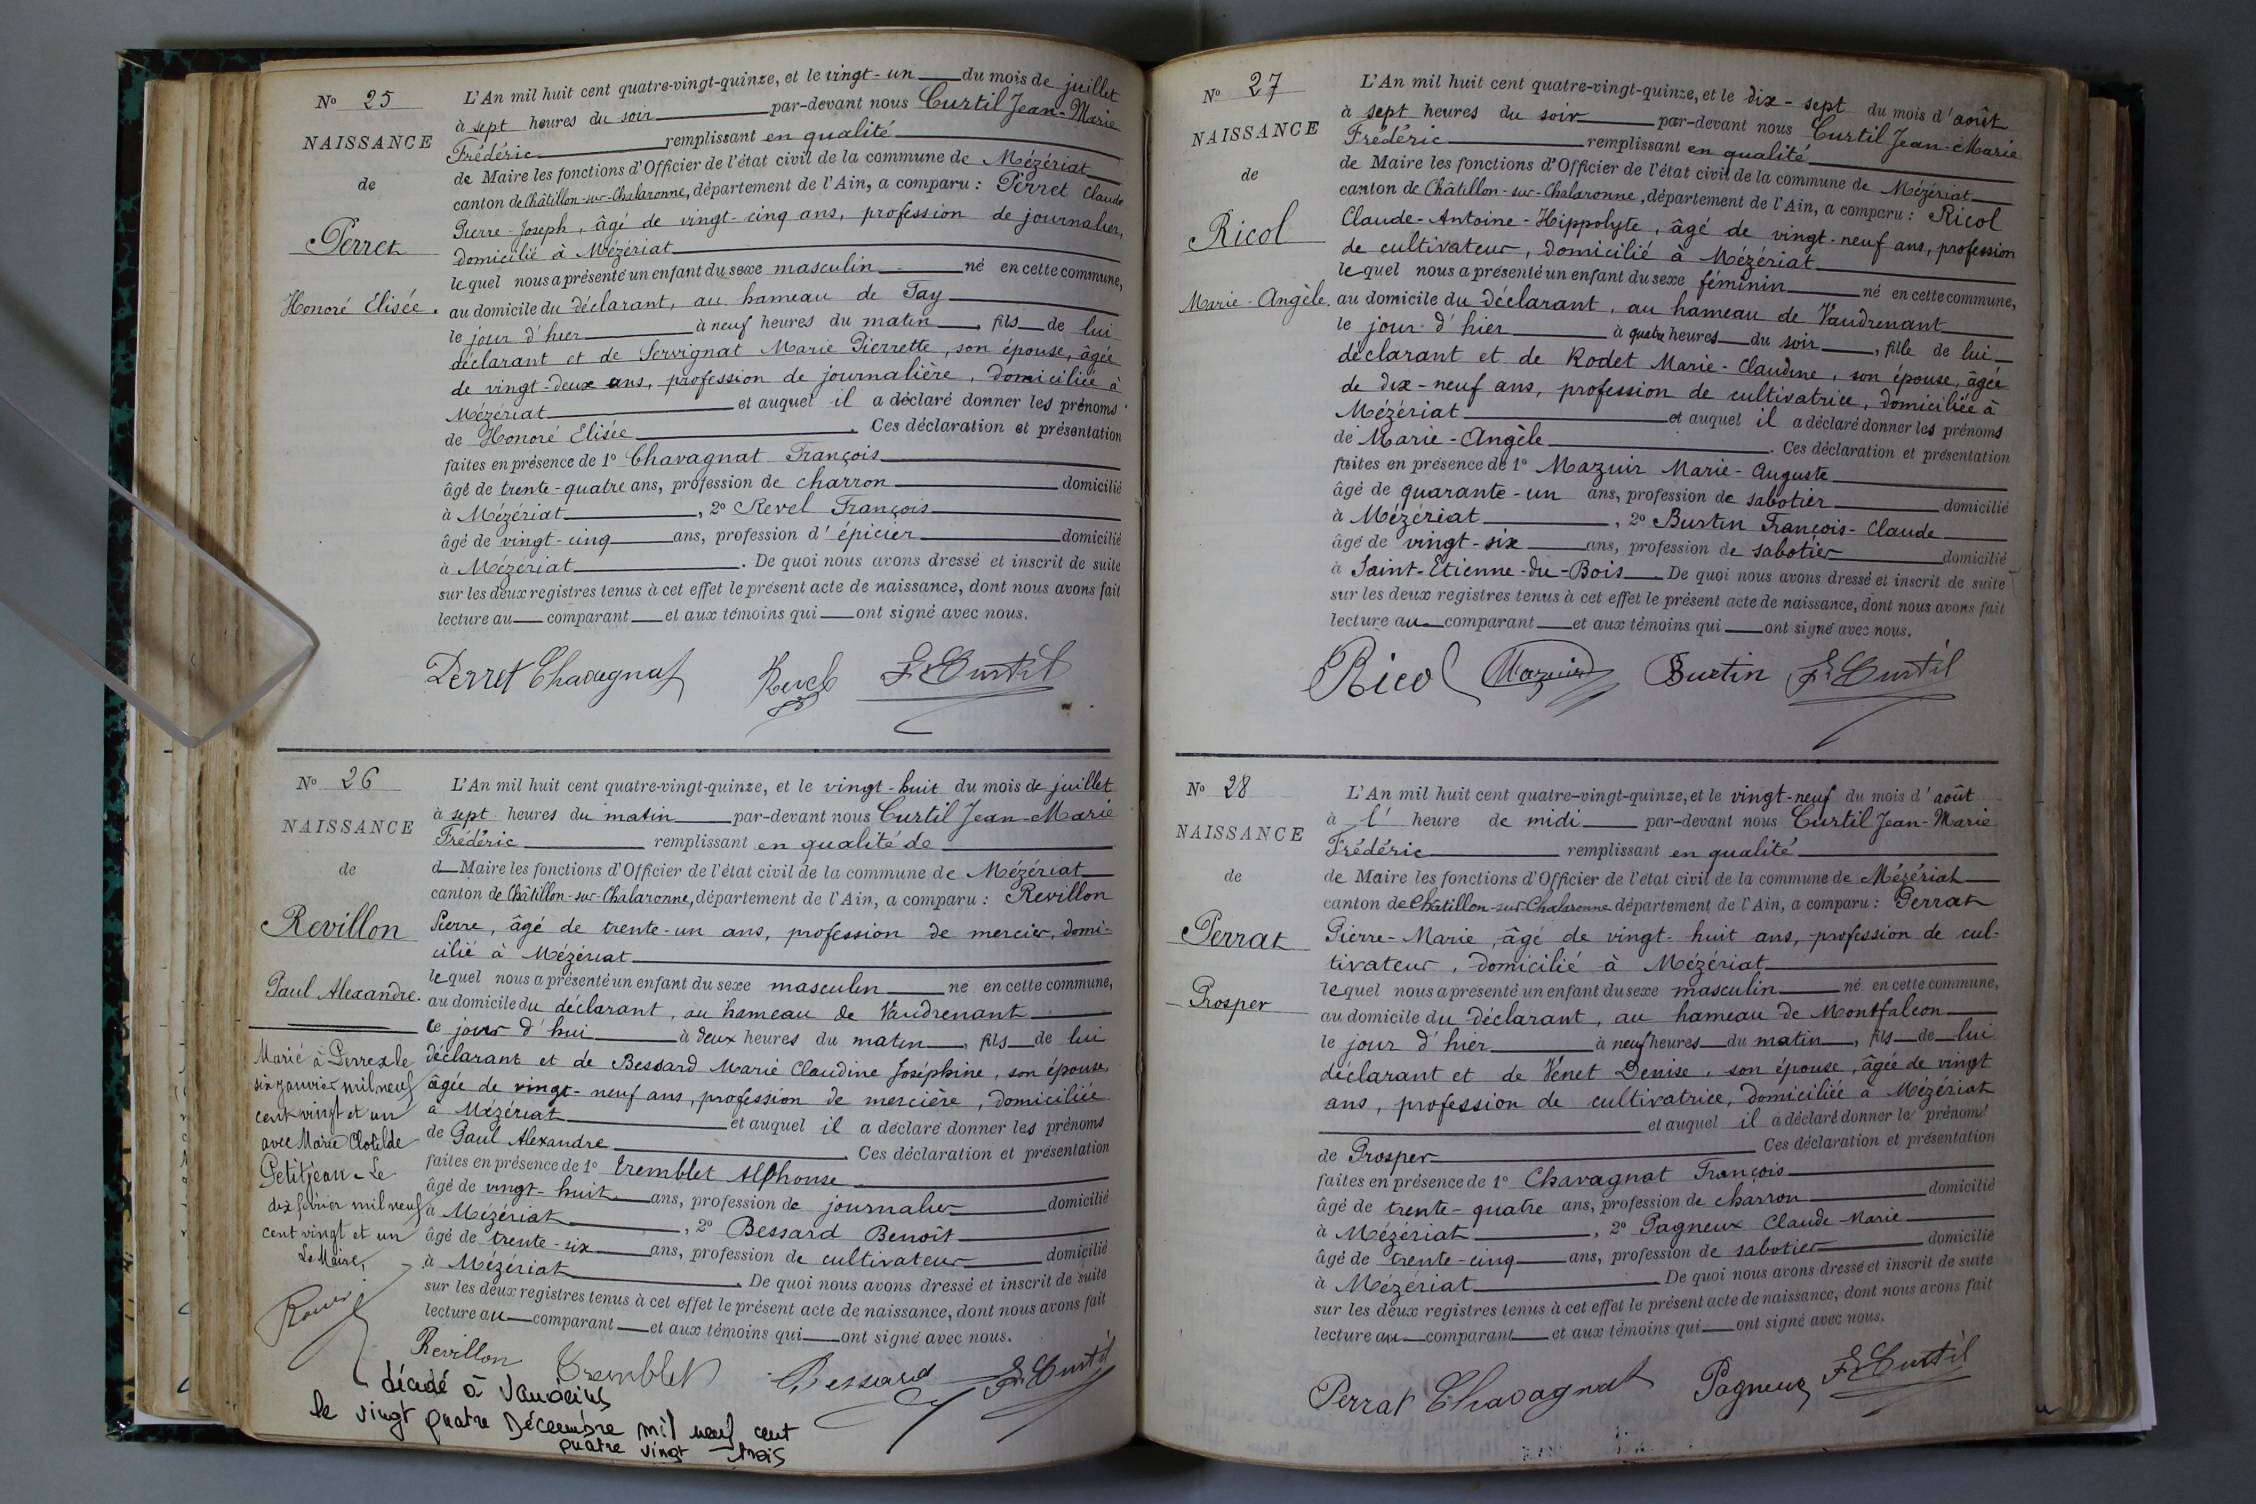 N° 25
NAISSANCE
de
Perret
Honoré Elisée.
L'An mil huit cent quatre-vingt-quinze, et le vingt-un du mois de juillet
à sept heures du soir par-devant nous Curtil Jean-Marie
Frédéric remplissant en qualité
de Maire les fonctions d'Officier de l'état civil de la commune de Mézériat
canton de Châtillon-sur-Chalaronne, département de l'Ain, a comparu : Perret Claude
Pierre-Joseph, âgé de vingt-cinq ans, profession de journalier,
domicilié à Mézériat
lequel nous a présenté un enfant du sexe masculin né en cette commune,
au domicile du déclarant, au hameau de Tay
le jour d'hier à neuf heures du matin, fils de lui
déclarant et de Servignat Marie Pierrette, son épouse, âgée
de vingt-deux ans, profession de journalière, domiciliée à
Mézériat et auquel il a déclaré donner les prénoms
de Honoré Elisée. Ces déclaration et présentation
faites en présence de 1° Chavagnat François
âgé de trente-quatre ans, profession de charron domicilié
à Mézériat, 2° Revel François
âgé de vingt-cinq ans, profession d'épicier domicilié
à Mézériat. De quoi nous avons dressé et inscrit de suite
sur les deux registres tenus à cet effet le présent acte de naissance, dont nous avons fait
lecture au comparant et aux témoins qui ont signé avec nous.
Perret Chavagnat Revel Fr Curtil
N° 26
NAISSANCE
de
Revillon
Paul Alexandre.
Marié à Perrex le
six janvier mil neuf
cent vingt et un
avec Marie Clotilde
Petitjean - Le
dix février mil neuf
cent vingt et un
Le Maire,
L'An mil huit cent quatre-vingt-quinze, et le vingt-huit du mois de juillet
à sept heures du matin par-devant nous Curtil Jean-Marie
Frédéric remplissant en qualité de
d Maire les fonctions d'Officier de l'état civil de la commune de Mézériat
canton de Châtillon-sur-Chalaronne, département de l'Ain, a comparu : Revillon
Pierre, âgé de trente-un ans, profession de mercier, domi-
cilié à Mézériat
lequel nous a présenté un enfant du sexe masculin né en cette commune,
au domicile du déclarant, au hameau de Vaudrenant
ce jour d'hui à deux heures du matin, fils de lui
déclarant et de Bessard Marie Claudine Joséphine, son épouse,
âgée de vingt-neuf ans, profession de mercière, domiciliée
à Mézériat et auquel il a déclaré donner les prénoms
de Paul Alexandre. Ces déclaration et présentation
faites en présence de 1° Tremblet Alphonse
âgé de vingt-huit ans, profession de journalier domicilié
à Mézériat, 2° Bessard Benoît
âgé de trente-six ans, profession de cultivateur domicilié
à Mézériat. De quoi nous avons dressé et inscrit de suite
sur les deux registres tenus à cet effet le présent acte de naissance, dont nous avons fait
lecture au comparant et aux témoins qui ont signé avec nous.
Revillon Tremblet Bessard Fr Curtil
décédé à
le vingt quatre Décembre mil neuf cent
quatre vingt trois
N° 27
NAISSANCE
de
Ricol
Marie-Angèle
L'An mil huit cent quatre-vingt-quinze, et le dix-sept du mois d'août
à sept heures du soir par-devant nous Curtil Jean-Marie
Frédéric remplissant en qualité
de Maire les fonctions d'Officier de l'état civil de la commune de Mézériat
canton de Châtillon-sur-Chalaronne, département de l'Ain, a comparu : Ricol
Claude-Antoine-Hippolyte, âgé de vingt-neuf ans, profession
de cultivateur, domicilié à Mézériat
lequel nous a présenté un enfant du sexe féminin né en cette commune,
au domicile du déclarant, au hameau de Vaudrenant
le jour d'hier à quatre heures du soir, fille de lui
déclarant et de Rodet Marie-Claudine, son épouse, âgée
de dix-neuf ans, profession de cultivatrice, domiciliée à
Mézériat et auquel il a déclaré donner les prénoms
de Marie-Angèle. Ces déclaration et présentation
faites en présence de 1° Mazuir Marie-Auguste
âgé de quarante-un ans, profession de sabotier domicilié
à Mézériat, 2° Burtin François-Claude
âgé de vingt-six ans, profession de sabotier domicilié
à Saint-Etienne-du-Bois. De quoi nous avons dressé et inscrit de suite
sur les deux registres tenus à cet effet le présent acte de naissance, dont nous avons fait
lecture au comparant et aux témoins qui ont signé avec nous.
Ricol Mazuir Burtin Fr Curtil
N° 28
NAISSANCE
de
Perrat
Prosper
L'An mil huit cent quatre-vingt-quinze, et le vingt-neuf du mois d'août
à l' heure de midi par-devant nous Curtil Jean-Marie
Frédéric remplissant en qualité
de Maire les fonctions d'Officier de l'état civil de la commune de Mézériat
canton de Châtillon-sur-Chalaronne département de l'Ain, a comparu : Perrat
Pierre-Marie, âgé de vingt-huit ans, profession de cul-
tivateur, domicilié à Mézériat
lequel nous a présenté un enfant du sexe masculin né en cette commune,
au domicile du déclarant, au hameau de Montfalcon
le jour d'hier à neuf heures du matin, fils de lui
déclarant et de Vénet Denise, son épouse, âgée de vingt
ans, profession de cultivatrice, domiciliée à Mézériat
et auquel il a déclaré donner le prénom
de Prosper Ces déclaration et présentation
faites en présence de 1° Chavagnat François
âgé de trente-quatre ans, profession de charron domicilié
à Mézériat, 2° Pagneux Claude Marie
âgé de trente-cinq ans, profession de sabotier domicilié
à Mézériat De quoi nous avons dressé et inscrit de suite
sur les deux registres tenus à cet effet le présent acte de naissance, dont nous avons fait
lecture au comparant et aux témoins qui ont signé avec nous.
Perrat Chavagnat Pagneux Fr Curtil